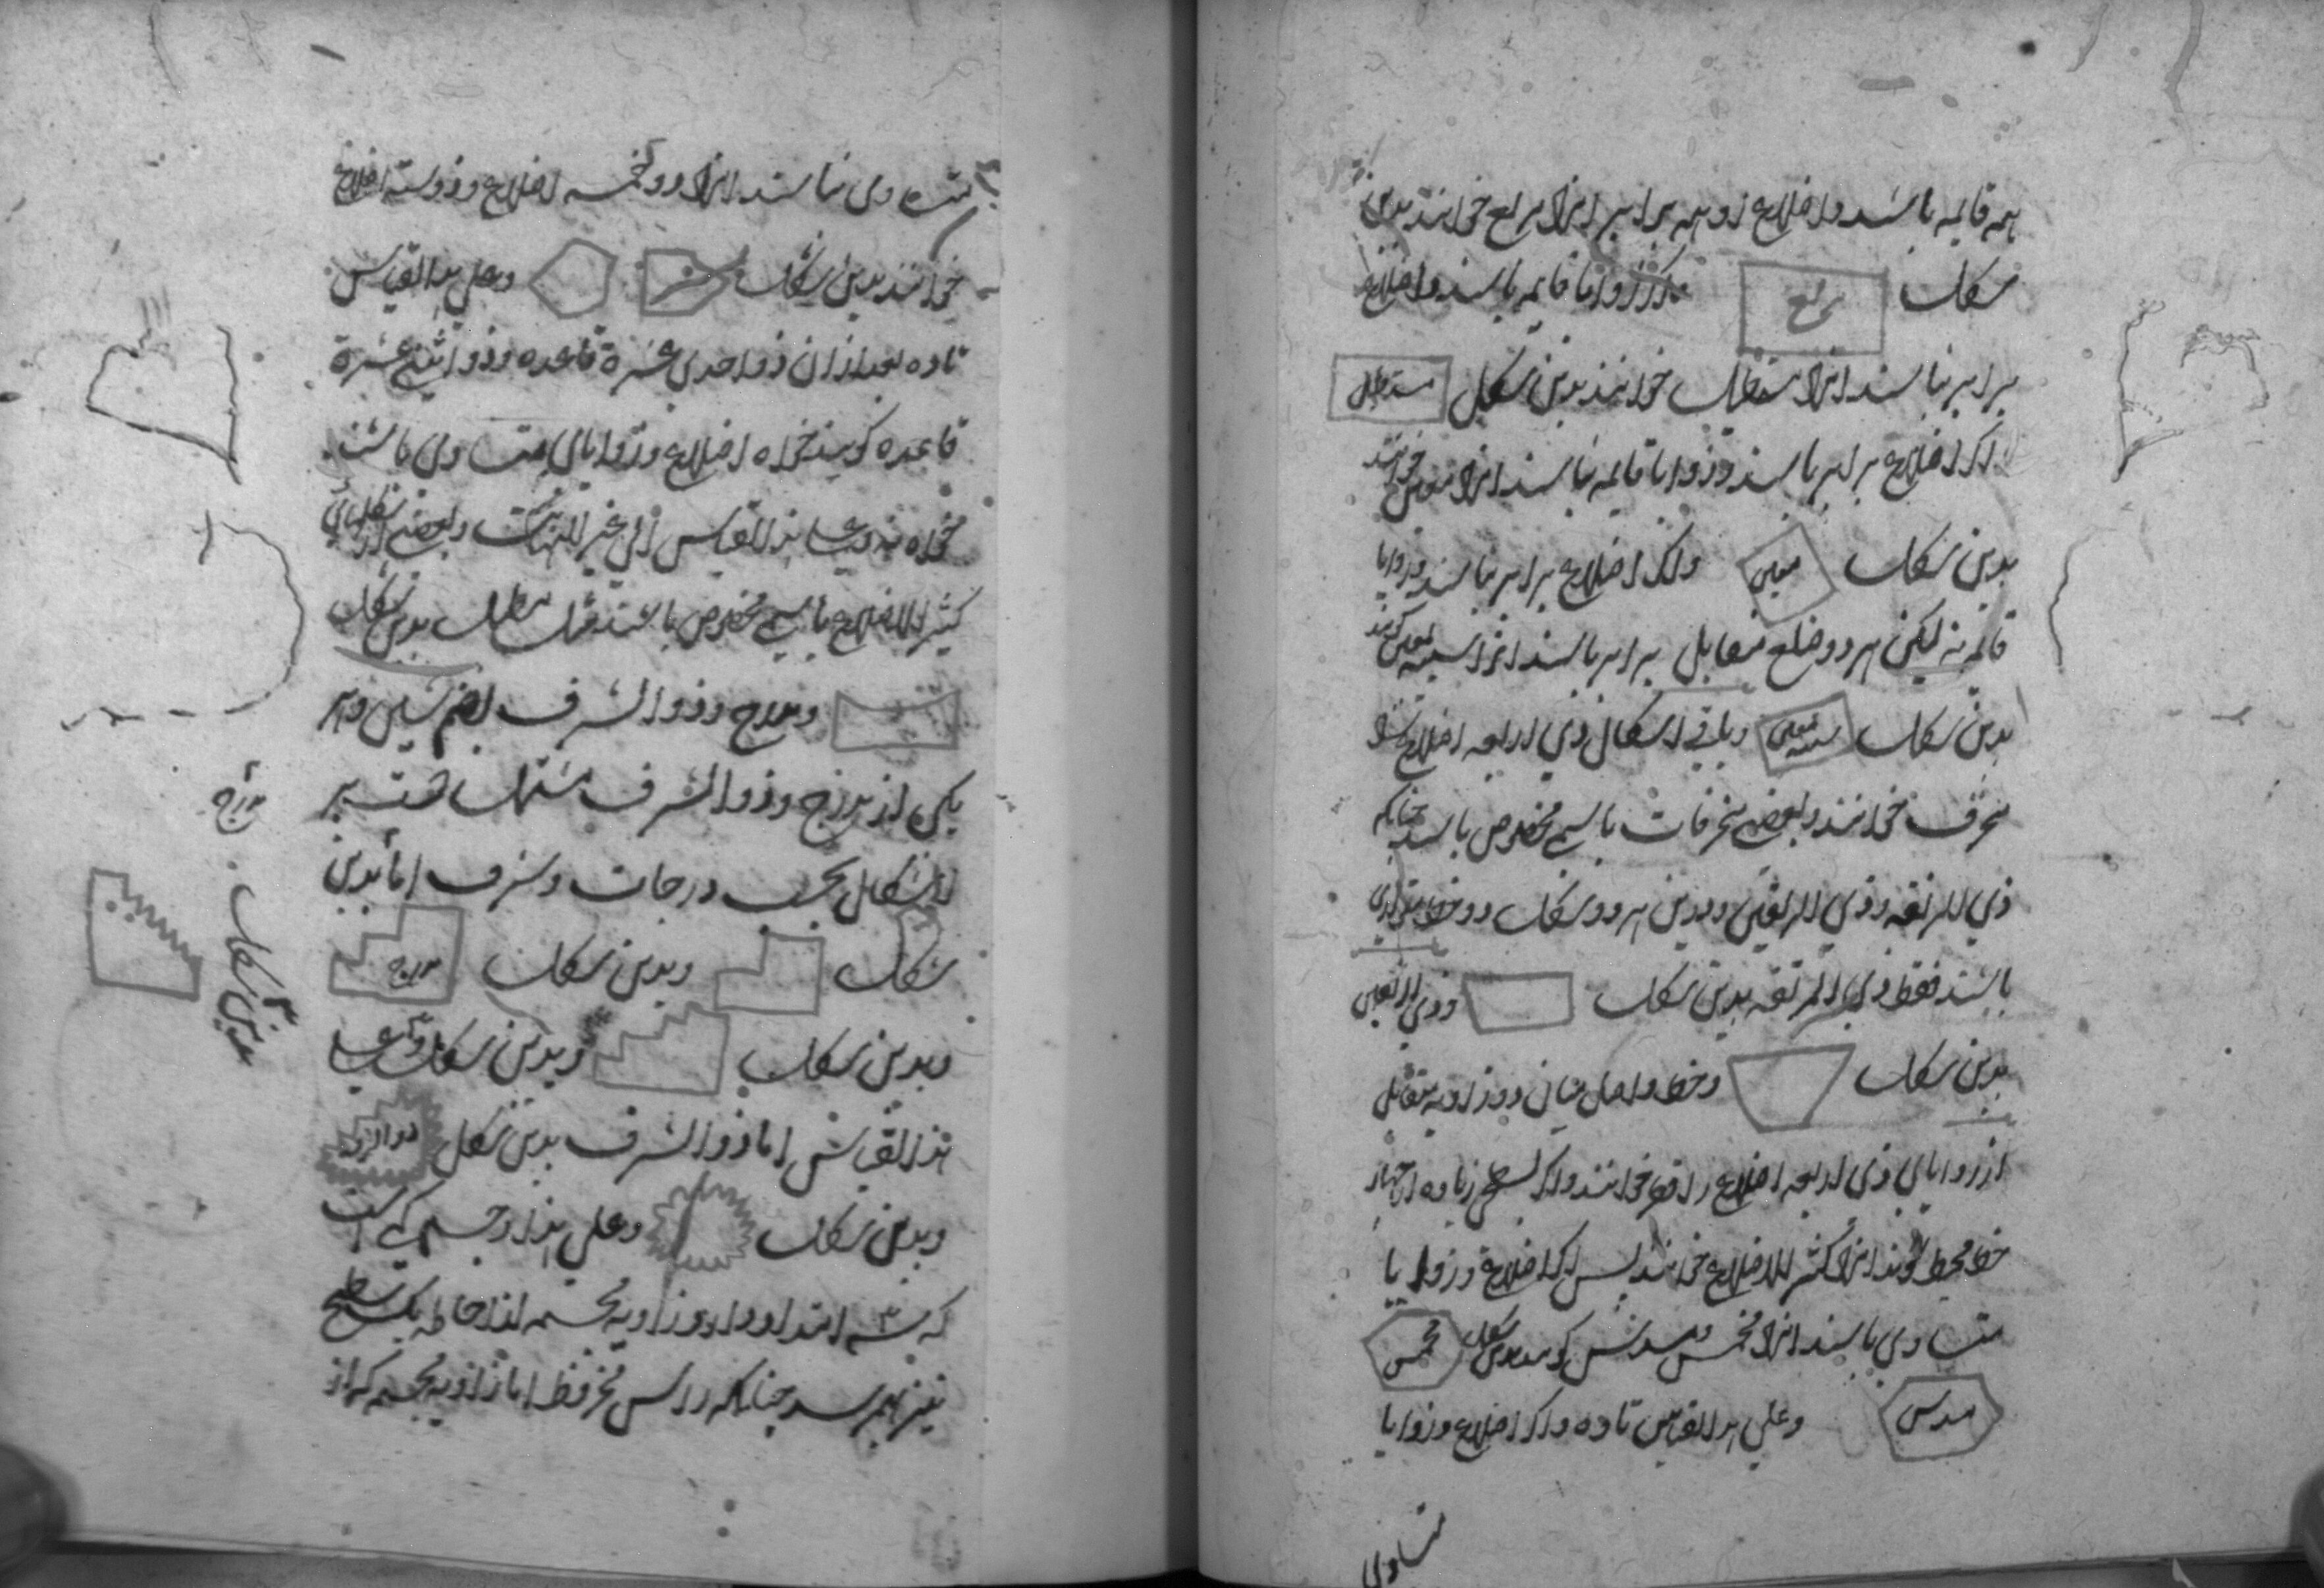 همه قایمه باشند و اضلاع او همه برابر انرا مربع خوانند بدین
شکل مربع و اکر زوایا قایمه باشند و اضلاع
برابر نباشند انرا مستطیل خوانند بدین شکل مستطیل
اکر اضلاع برابر باشند و زوایا قایمه نباشند انرا معین خوانند
بدین شکل معین و اکر اضلاع برابر نباشند و زوایا
قایمه نه لیکن هر دو ضلع متقابل برابر باشند انرا شبیه معین کویند
بدین شکل شبیه معین و باقی اشکال ذی اربعه اضلاع
منحرف خوانند و بعضی منحرفات باسمی مخصوص باشند چنانکه
ذی الزنقه و ذی الزنقتین و درین هر دو شکل دو خط متوازی
باشند فقط ذی الزنقه بدین شکل و ذی الزنقتین
بدین شکل و خط واصل میان دو زاویه متقابل
از زوایای ذی اربعه اضلاع را قطر خوانند و اکر بسطحی زیاده از چهار
خط محیط شوند انرا کثیر الاضلاع خوانند پس اکر اضلاع و زوایا
متساوی باشند انرا مخمس و مسدس کویند بدین شکل مخمس
مسدس و علی هذا القیاس تا ده و اکر اضلاع و زوایا
متساوی
متساوی نباشند انرا ذو خمسه اضلاع و ذو سته اضلاع
خوانند بدین شکل و علی هذا القیاس
تا ده بعد از ان ذو احدی عشرة قاعده و ذو اثنی عشرة
قاعده کویند خواه اضلاع و زوایای متساوی باشند
خواه نه و علی هذا القیاس الی غیر النهایت و بعضی از شکلهای
کثیر الاضلاع باسمی مخصوص باشند مثل مطبل بدین شکل
و مدرج و ذو الشرف بضم شین و هر
یکی از مدرج و ذو الشرف مشتمل هست بر
اشکال بحسب درجات و شرف اما بدین
شکل و بدین شکل مدرج
و بدین شکل و بدین شکل و علی
هذا القیاس اما ذو الشرف بدین شکل ذو الشرف
و بدین شکل و علی هذا و جسم کمی است
که سه امتداد دارد و زاویه مجسمه از احاطه یک سطح
نیز بهم رسد چنانکه راس مخروط اما زاویه مجسمه که از
مدرج
بدین شکل